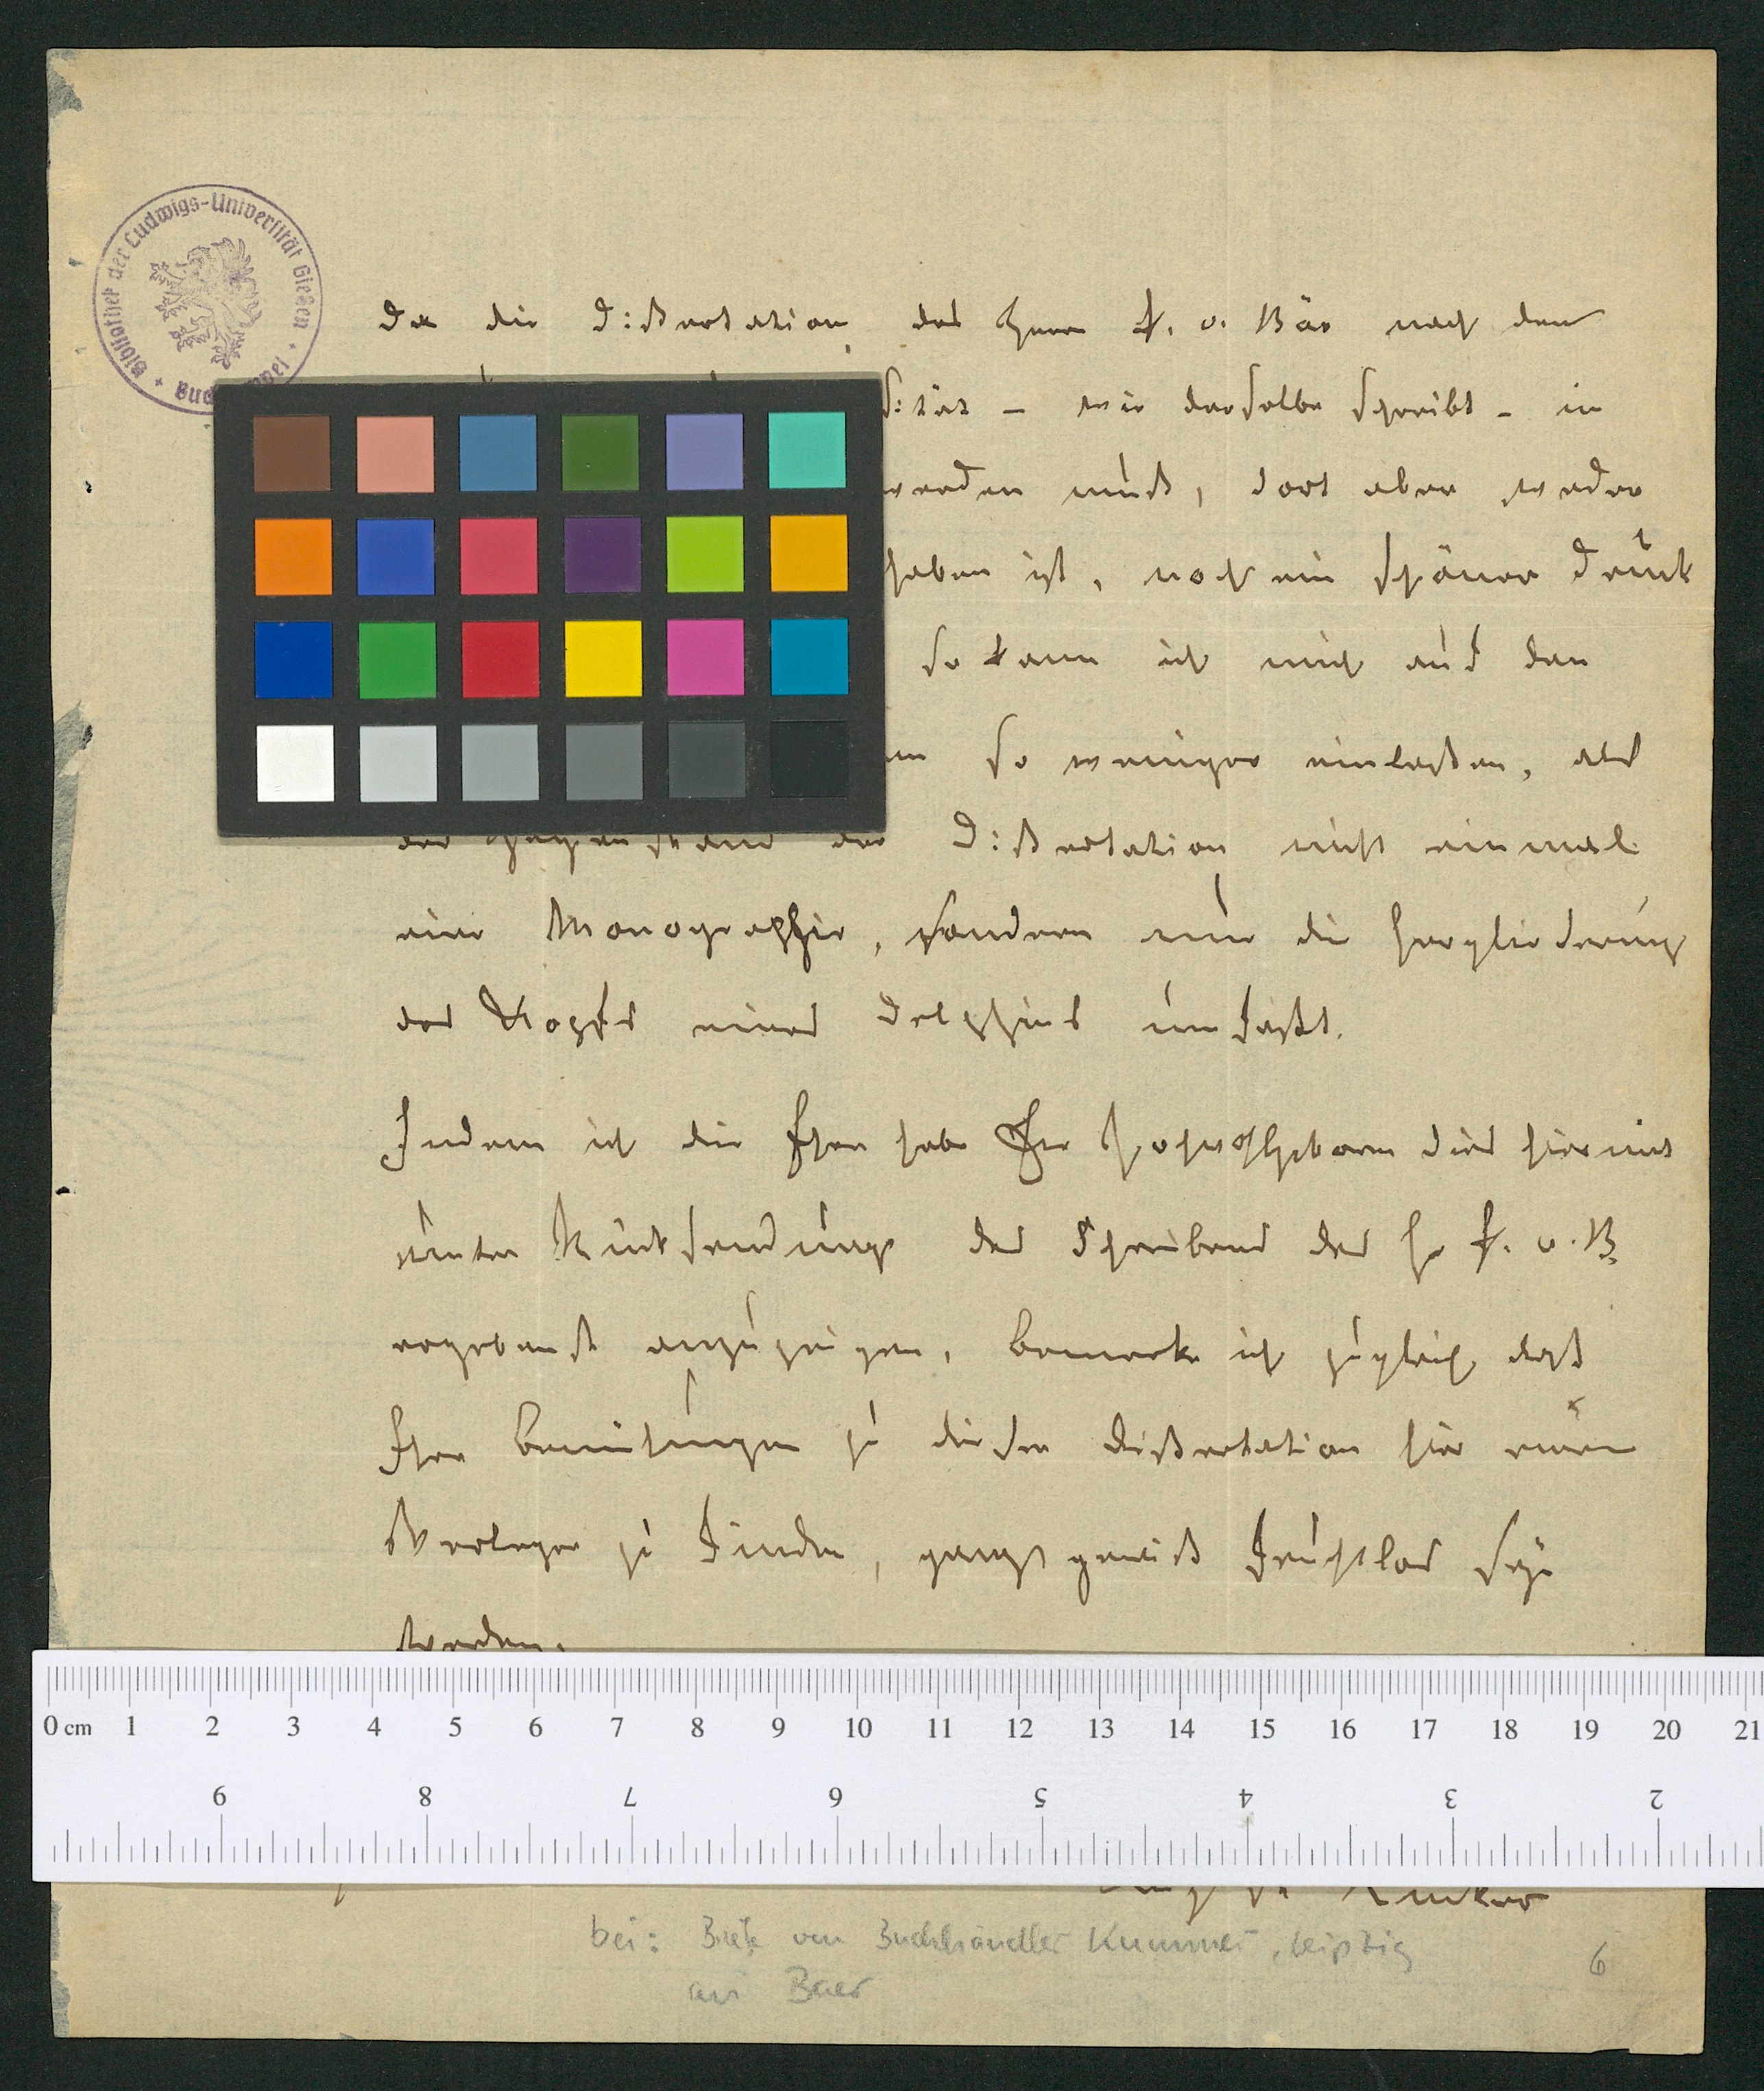 Bibliothek der Ludwigs-Universität Gießen
Da die Dißertation des Herrn K. v. Bär nach dem
sität - wie derselbe schreibt - in
werden muß, dort aber weder
haben ist, noch ein schöner Druck
so kann ich mich auf den
um so weniger einlaßen, als
der Gegenstand der Dißertation nicht einmal
eine Monographie, sondern nur die Zergliederung
des Kopfs eines Delphins umfaßt.
Indem ich die Ehre habe Ew Hochwohlgeborn dies hiermit
unter Rücksendung des Schreibens des H K. v. B.
ergebenst anzuzeigen, bemerke ich zugleich daß
Ihre Bemühungen zu dieser Dißertation hier einen
Verleger zu finden, ganz gewiß fruchtlos seyn
werden.
0 cm 1 2 3 4 5 6 7 8 9 10 11 12 13 14 15 16 17 18 19 20 21
9 8 7 6 5 4 3 2
bei: Briefe von Buchhändler Kummer, Leipzig
an Baer
6